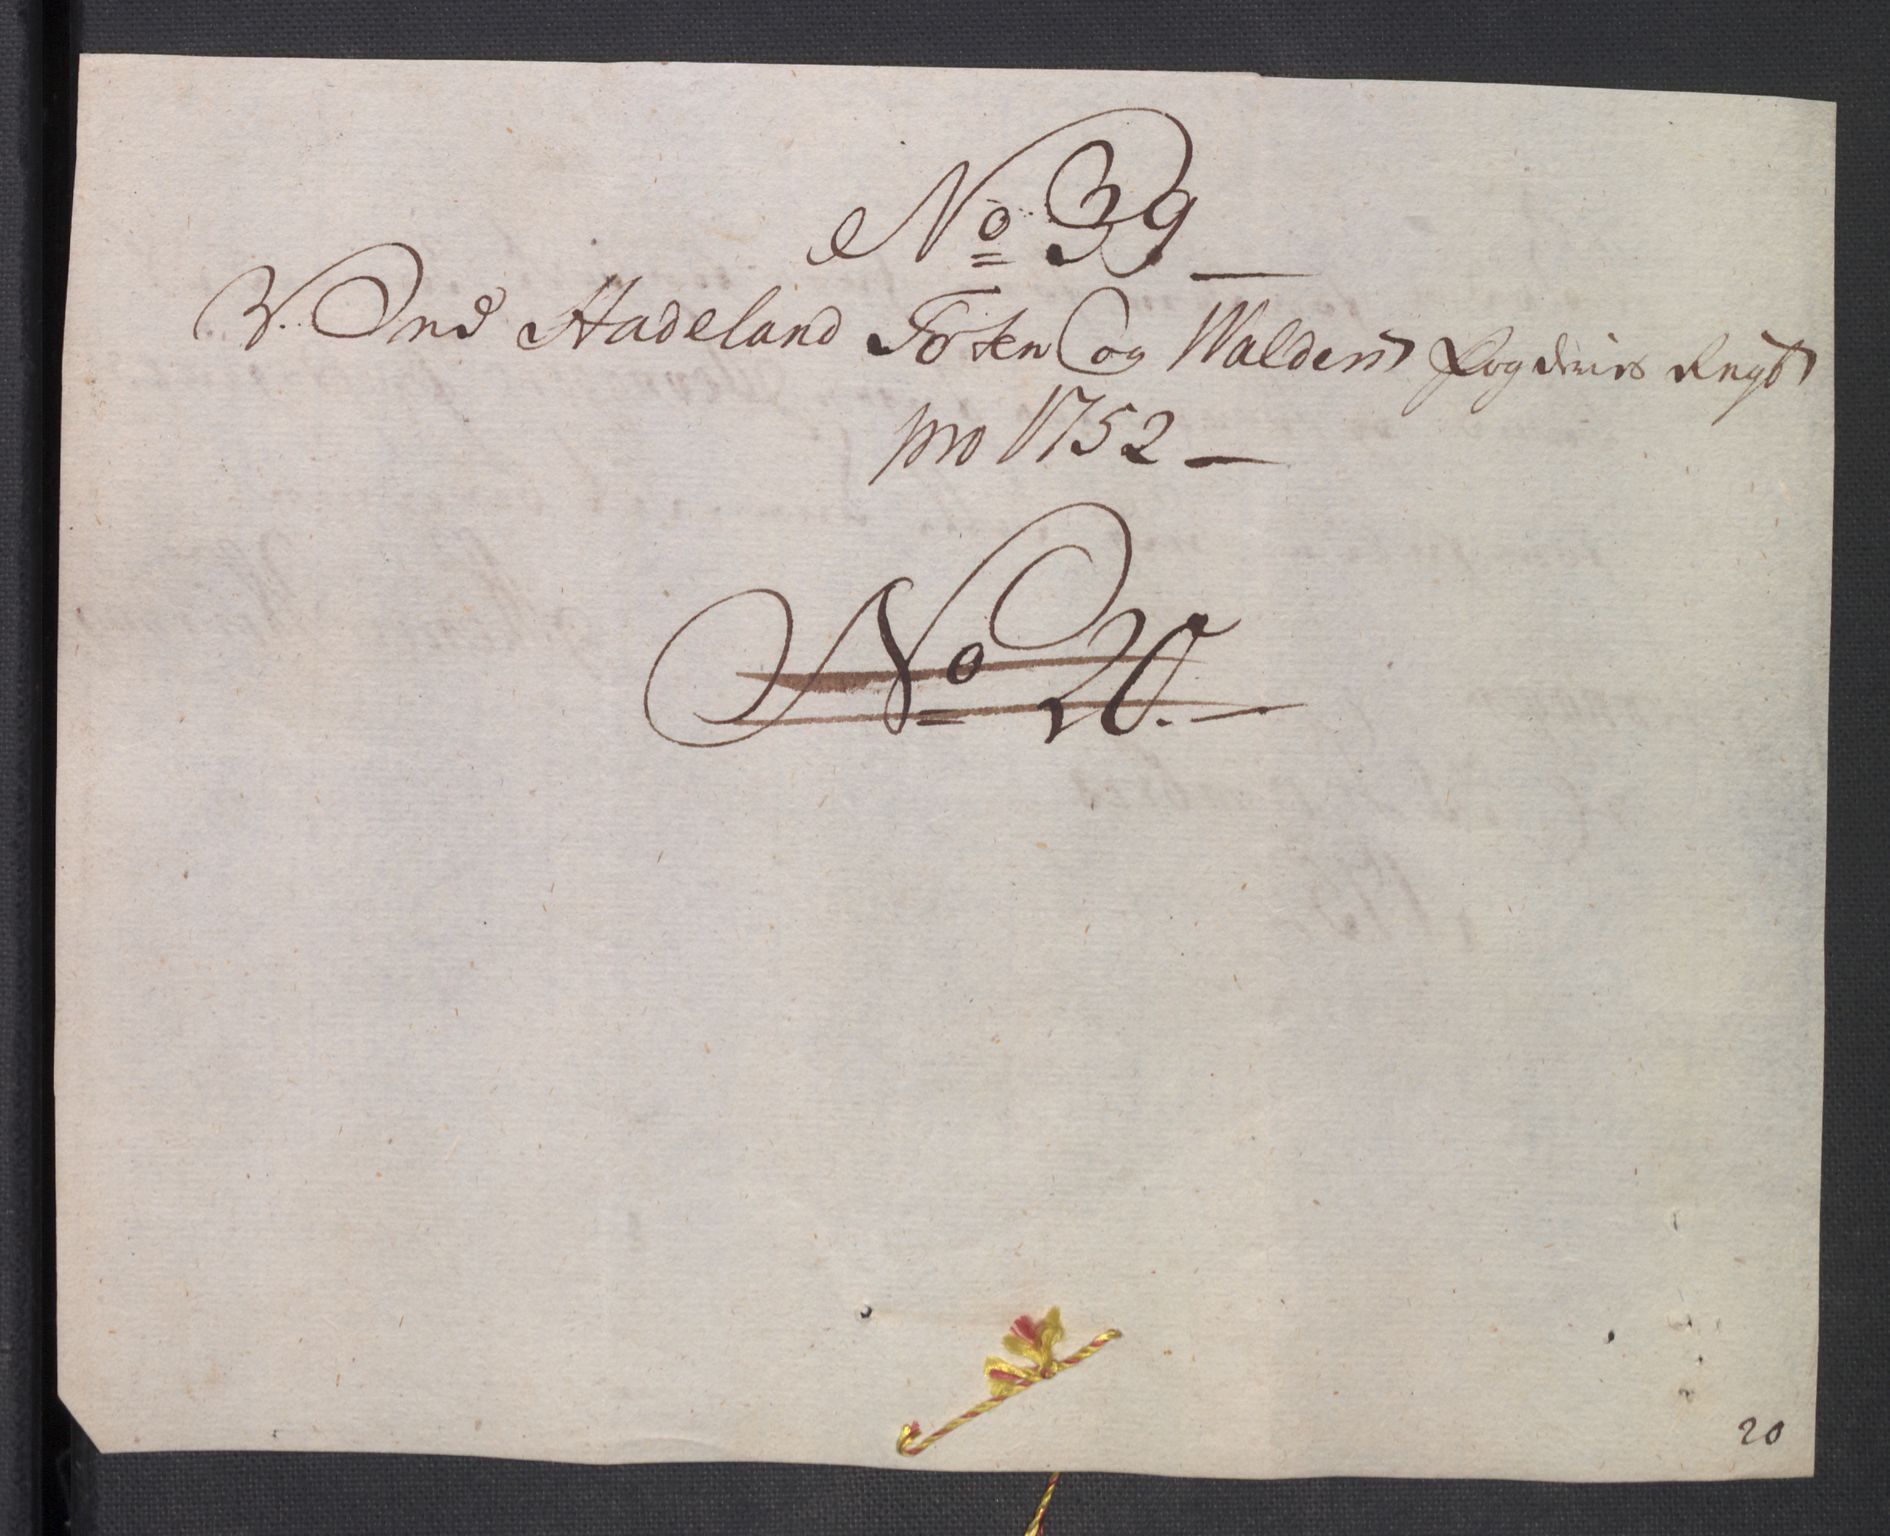 No 39
V. Ved Hadeland Toten Og Walders Fogderies Regsk
pro 1752
No 20.
20